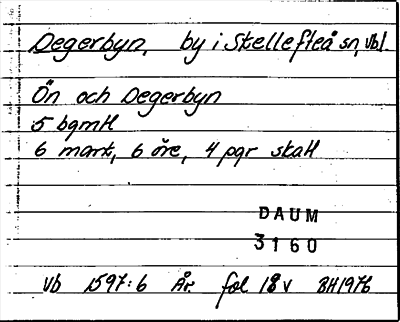 Degerbyn, by i Skellefteå sn, Vbl.
Ön och Degerbyn
5 bgmtl
6 mark, 6 öre, 4 pgr skatt
DAUM
3160
Vb 1597:6 År fol 18 v BH1976